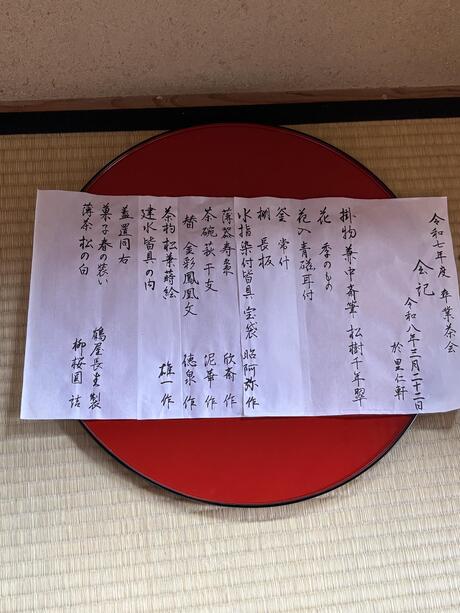 令和七年度 卒業茶会
会記
令和八年三月二十二日
於 里仁軒
掛物 兼中斎筆 松樹千年翠
花 季のもの
花入 青磁耳付
釜 常什
棚 長板
水指 染付皆具 宝袋 昭阿弥作
薄器 寿棗 欣斎作
茶碗 萩干支 泥華作
替 金彩鳳凰文 徳泉作
茶杓 松葉蒔絵 雄一作
建水 皆具の内
蓋置 同右
菓子 春の装い 鶴屋長生製
薄茶 松の白 柳桜園詰